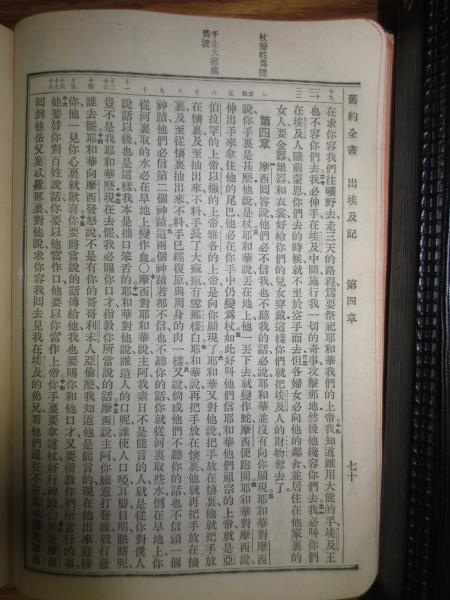 舊約全書 出埃及記 第四章 七十
杖變蛇爲證
手生大痲瘋
爲證
在求你容我們往曠野去走三天的路程爲要祭祀耶和華我們的上帝我知道雖用大能的手埃及王
也不容你們去我必伸手在埃及中間施行我一切的奇事攻擊那地然後他纔容你們去我必叫你們
在埃及人眼前蒙恩你們去的時候就不至於空手而去但各婦女必向他的鄰舍並居住在他家裏的
女人要金器銀器和衣裳好給你們的兒女穿戴這樣你們就把埃及人的財物奪去了
第四章 摩西囘答說他們必不信我也不聽我的話必說耶和華並沒有向你顯現耶和華對摩西
說你手裏是甚麽他說是杖耶和華說丟在地上他一丟下去就變作蛇摩西便跑開耶和華對摩西說
伸出手來拿住他的尾巴他必在你手中仍變爲杖如此好叫他們信耶和華他們祖宗的上帝就是亞
伯拉罕的上帝以撒的上帝雅各的上帝是向你顯現了耶和華又對他說把手放在懷裏他就把手放
在懷裏及至抽出來不料手長了大痲瘋有雪那樣白耶和華說再把手放在懷裏他就再把手放在懷
裏及至從懷裏抽出來不料手已經復原與周身的肉一樣又說倘或他們不聽你的話也不信頭一個
神蹟他們必信第二個神蹟這兩個神蹟若都不信也不聽你的話你就從河裏取些水倒在旱地上你
從河裏取的水必在旱地上變作血○摩西對耶和華說主阿我素日不是能言的人就是從你對僕人
說話以後也是這樣我本是拙口笨舌的耶和華對他說誰造人的口呢誰使人口啞耳聾目明眼瞎呢
豈不是我耶和華麽現在去罷我必賜你口才指教你所當說的話摩西說主阿你願意打發誰就打發
誰去罷耶和華向摩西發怒說不是有你的哥哥利未人亞倫麽我知道他是能言的現在他出來迎接
你他一見你心裏就歡喜你要將當說的話傳給他我也要賜你和他口才又要指教你們所當行的事
他要替你對百姓說話你要以他當作口他要以你當作上帝你手裏要拿這杖好行神蹟○於是摩西
囘到他岳父葉忒羅那裏對他說求你容我囘去見我在埃及的弟兄看他們還在不在葉忒羅對摩西